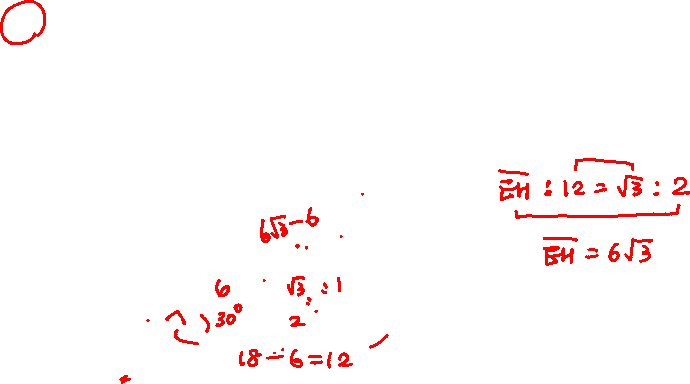 EH : 12 = √3 : 2
EH = 6√3
6√3 − 6
6 √3 : 1
30° 2
18 − 6 = 12